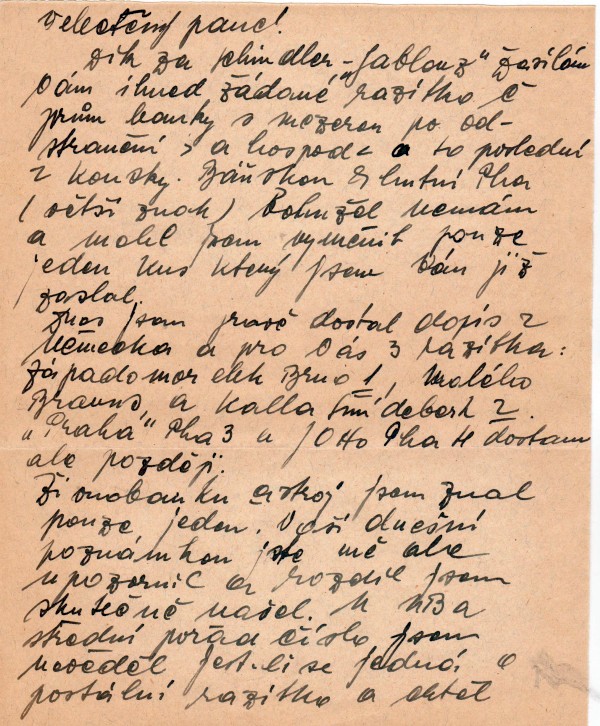 Velectěný pane!
Dík za Schindler-„Gablonz“ zasílám
Vám ihned žádané razítko Č
prům banky s mezerou po od-
stranění > a hospod < a to poslední
2 kousky. Báňskou & hutní Pha
(větší znak) bohužel nemám
a mohl jsem vyměnit pouze
jeden kus který jsem Vám již
zaslal.
Dnes jsem právě dostal dopis z
Německa a pro Vás 3 razítka:
Západomor elek Brno 1, Malého
a Kalla Šmídeberk 2.
„Praha“ Pha 3 a Otto Pha II dostanu
ale později.
Živnobanku jsem znal
pouze jeden. Vaší dnešní
poznámkou jste mě ale
upozornil a rozdíl jsem
skutečně našel. U NB a
střední pořad číslo jsem
nevěděl jest-li se jedná o
postální razítko a chtěl